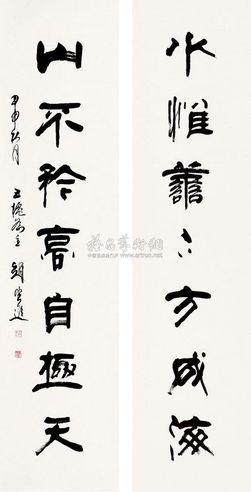 水惟善下方成海
山不矜高自極天
甲申秋月
雅昌藝術網
www.artron.net